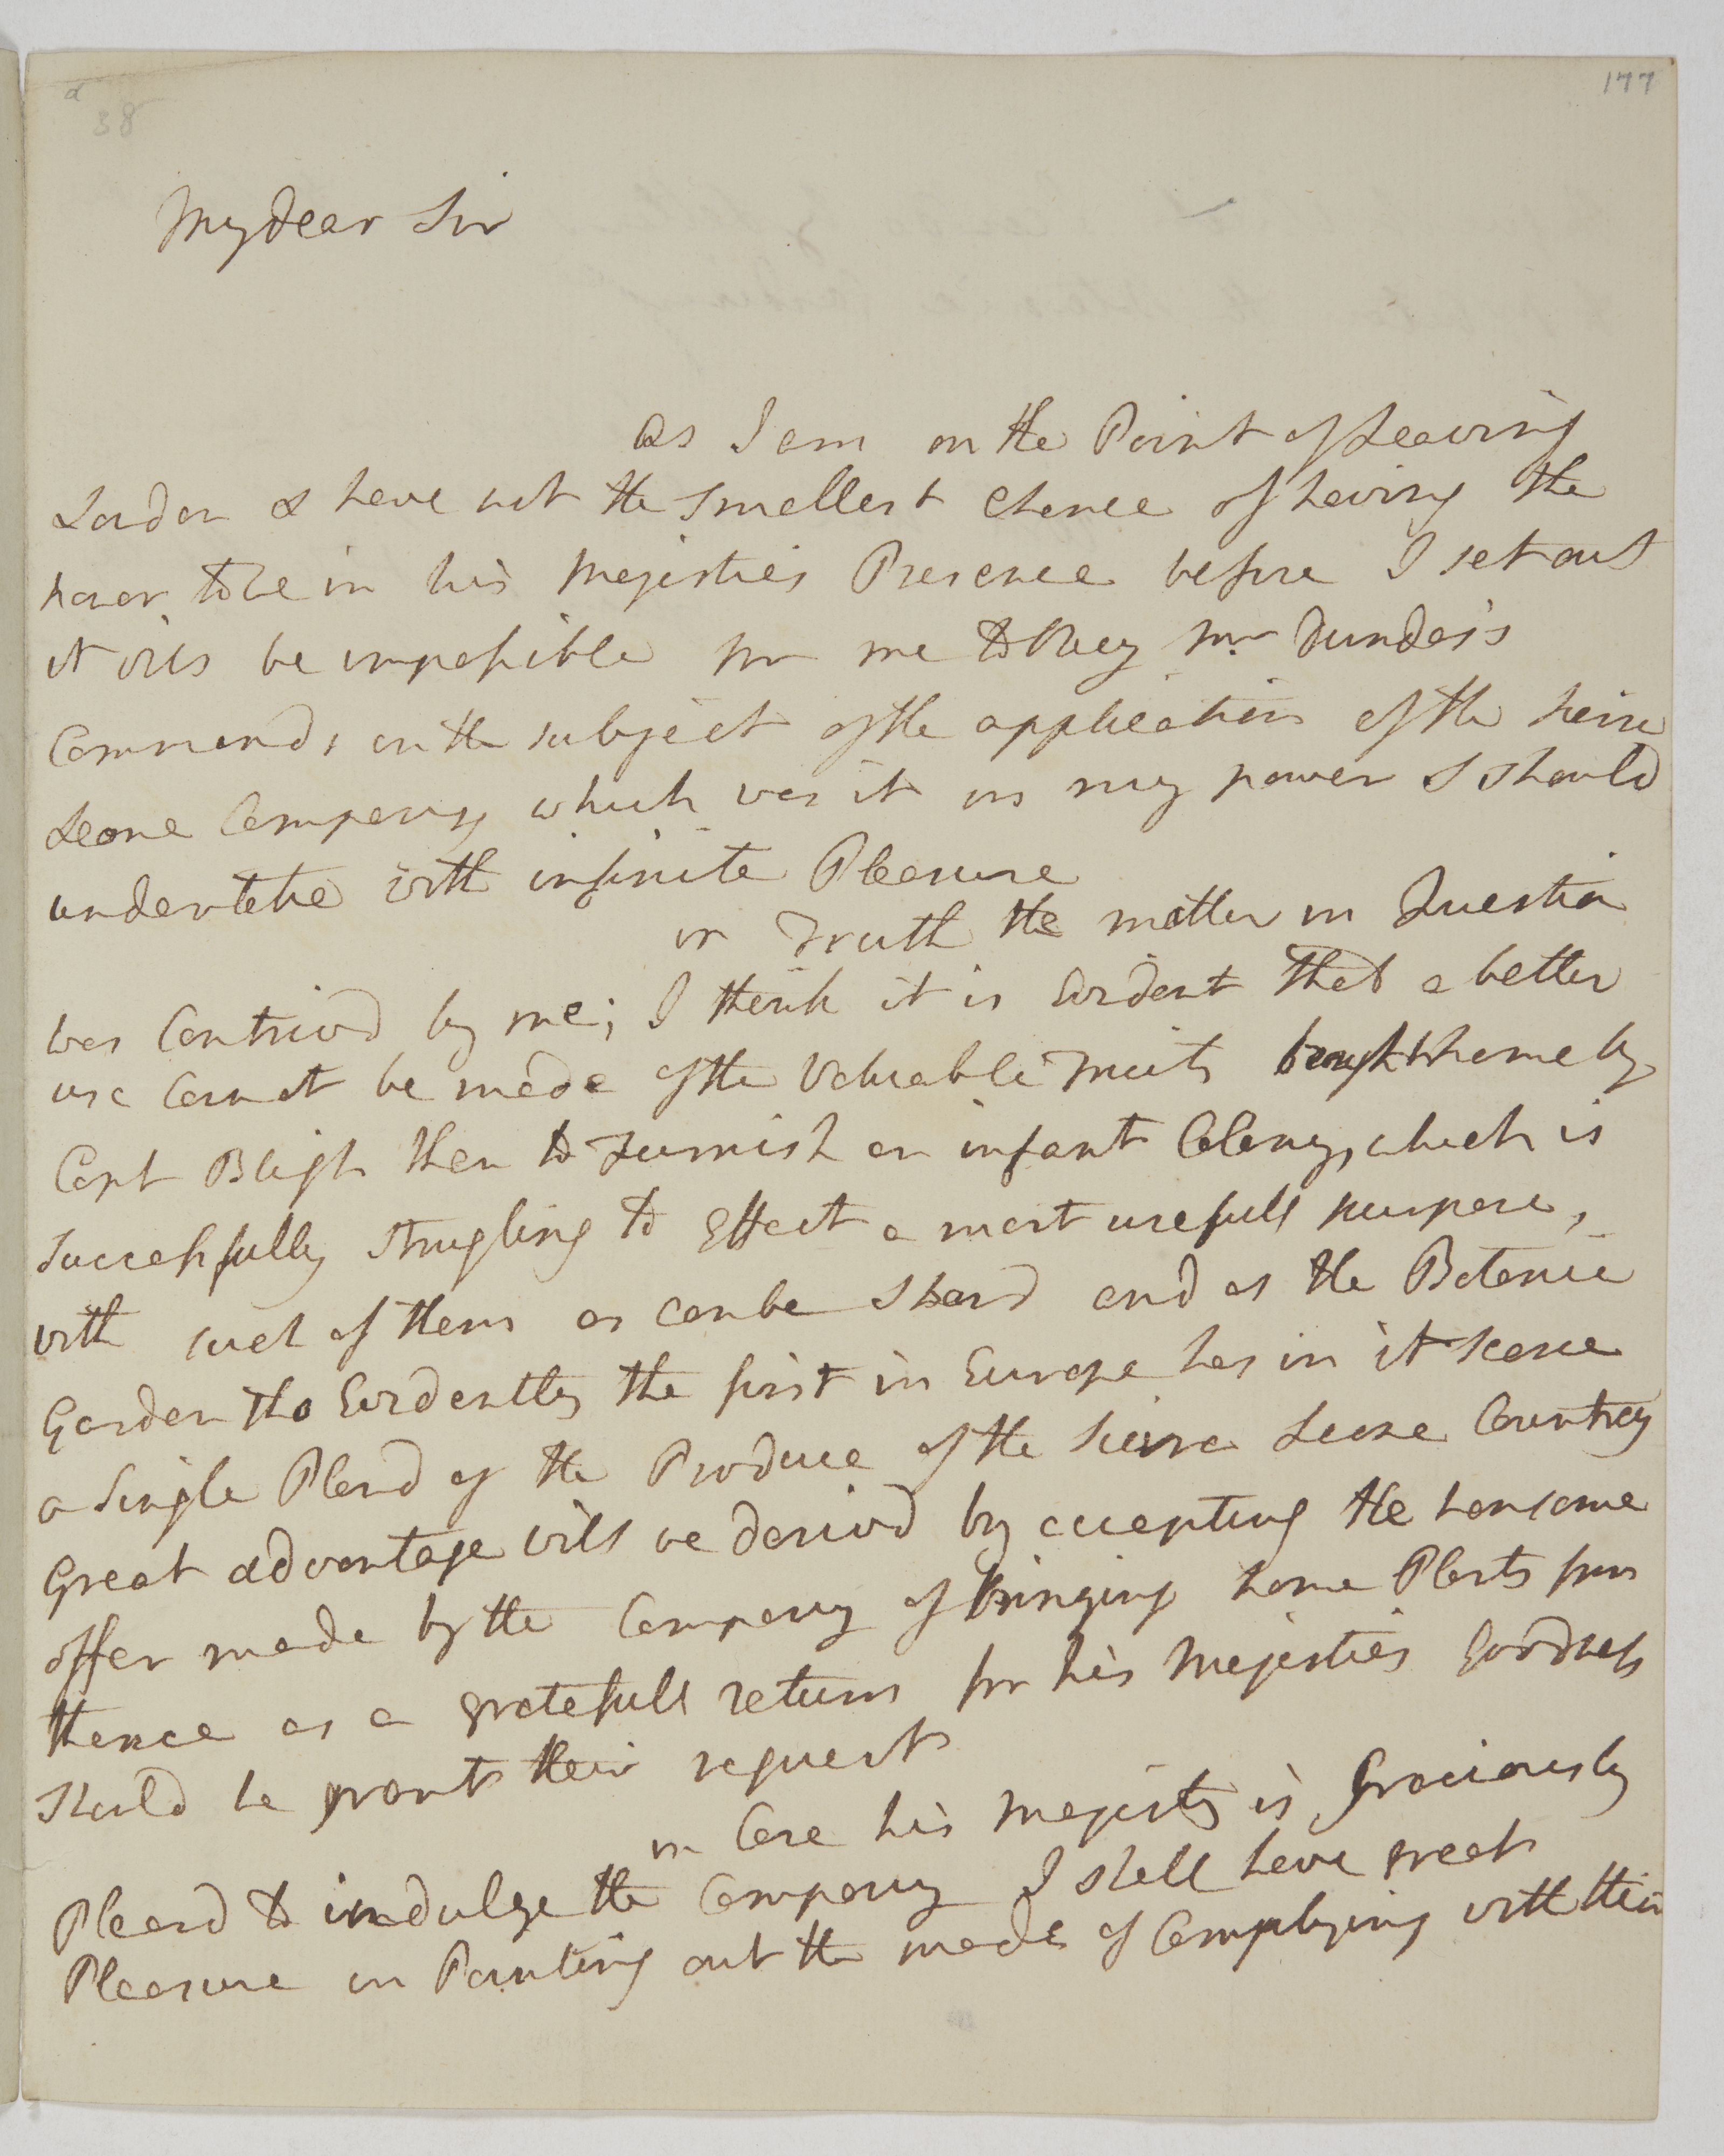 177
38
My dear Sir
as I am on the Point of Leaving
London & have not the smallest chance of having the
honor to be in his Majesties Presence before I set out
it will be impossible for me to Obey Mr Dundas's
Commands, on the subject of the application of the Sierra
Leone Company, which was it in my power I should
undertake with infinite Pleasure
in Truth the matter in Question
was Contrivd by me; I think it is Evident that a better
use Cannot be made of the Valuable Fruits brought home by
Capt Bligh then to Furnish an infant Colony, which is
successfully strugling to Effect a most usefull purpose,
with such of them as can be spard and as the Botanic
Garden tho Evidently the first in Europe has in it scarce
a Single Plant of the Produce of the Sierra Leone Country
Great advantage will be derivd by accepting the hansome
offer made by the Company of bringing home Plants from
thence as a gratefull return for his Majesties Goodness
should he grant their request
in Case his Majesty is Graciously
Pleasd to indulge the Company I shall have great
Pleasure in Pointing out the mode of Complying with their